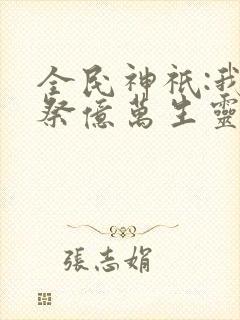 全民神祇:我
祭億萬生靈
張志娟